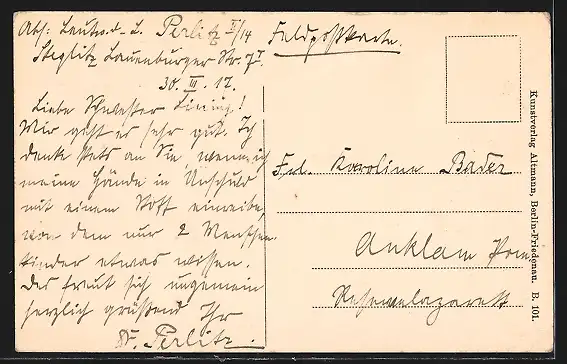 Abs: Leutn. d. L. Perlitz II/14
Steglitz Lauenburger Str. 7 I
30. III. 17.
Feldpostkarte.
Liebe Schwester Tining!
Mir geht es sehr gut. Ich
denke stets an Sie, wenn ich
meine Hände in Unschuld
mit einem Stoff einreibe,
von dem nur 2 Menschen
kinder etwas wissen.
Das freut sich ungemein
herzlich grüßend Ihr
Perlitz.
Frl. Karoline Bader
Anklam Pom
Reservelazarett
Kunstverlag Altmann, Berlin-Friedenau. B. 101.